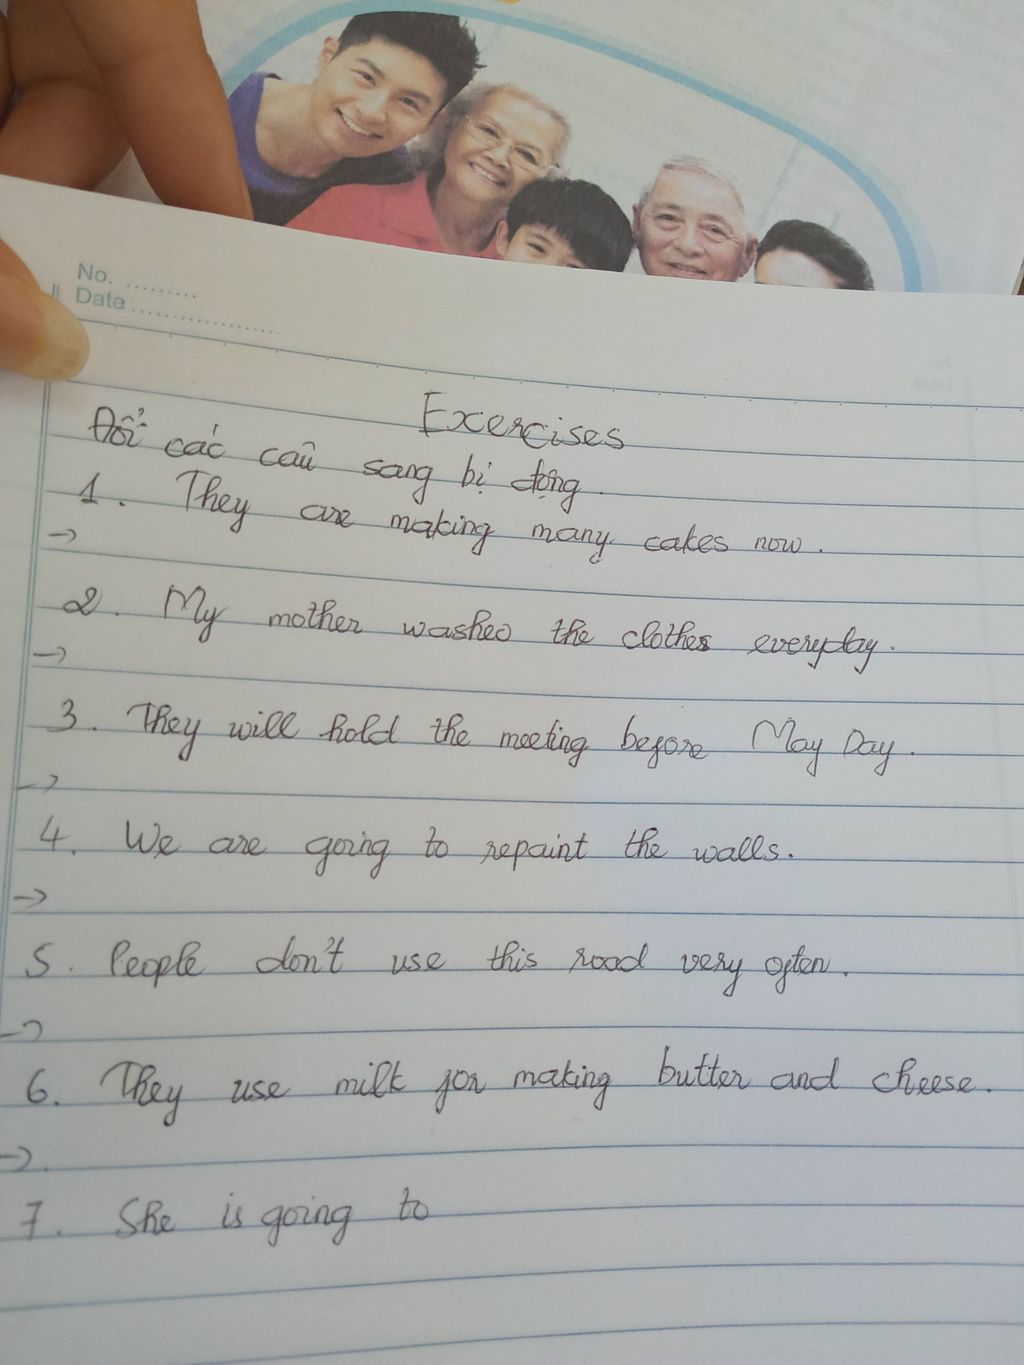 No. .........
Date ....................
Exercises
Đổi các câu sang bị động.
1. They are making many cakes now.
->
2. My mother washed the clothes everyday.
->
3. They will hold the meeting before May Day.
->
4. We are going to repaint the walls.
->
5. People don't use this road very often.
->
6. They use milk for making butter and cheese.
->.
7. She is going to